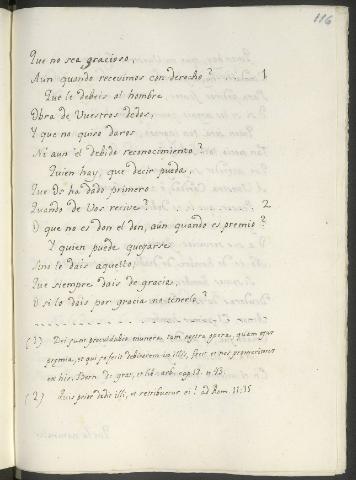 116
Que no sea gracioso
Aún quando recevimos con derecho? 1
Que le debeis al hombre
Obra de Vuestros dedos,
Y que no quiso daros
Ni aun el debido reconocimiento?
Quien hay, que decir pueda,
Que Os ha dado primero
Quando de Vos recive? 2
O que no es don el don, aún quando es premio?
Y quien puede quejarse
Sino le dais aquello,
Que siempre dais de gracia,
O si lo dais por gracia no tenerlo?
(1) Dei sunt procul dubio munera, tam nostra opera, quam ejus
premia, et qui se fecit debitorem in illis, fecit et nos promeritores
ex his. Bern. de grat. et lib. arb. cap. 13. n. 43.
(2) Quis prior dedit illi, et retribuetur ei? ad Rom. 11. 35